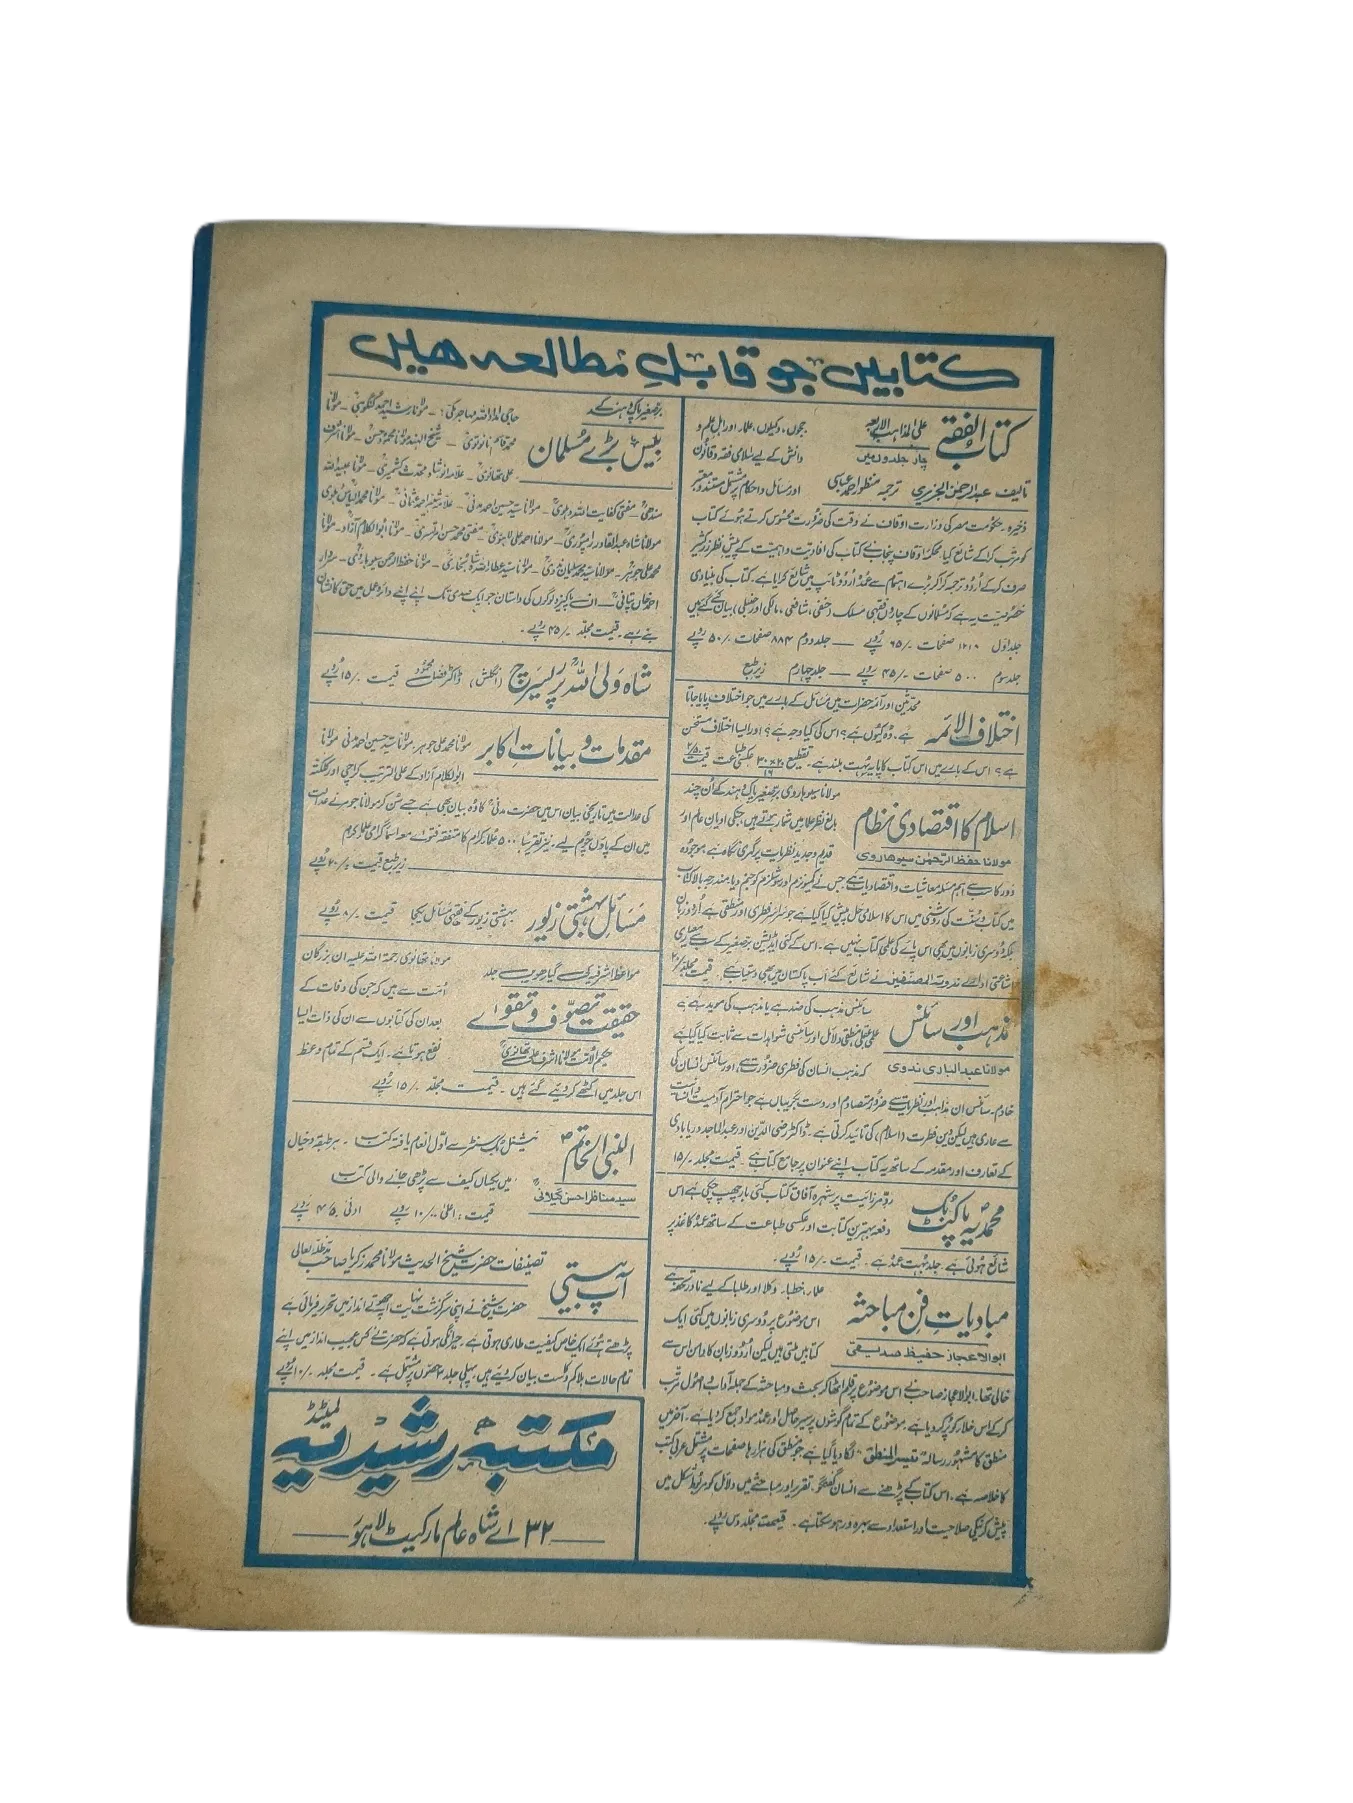 کتابیں جو قابلِ مطالعہ ھیں
کتاب الفقہ
علی المذاہب الاربعہ
چار جلدوں میں
ججوں، وکیلوں، علماء اور اہل علم و
دانش کے لیے اسلامی فقہ و قانون
تالیف عبدالرحمٰن الجزیری ترجمہ منظور احمد عباسی
اور مسائل و احکام پر مشتمل مستند و معتبر
ذخیرہ۔ حکومت مصر کی وزارت اوقاف نے وقت کی ضرورت محسوس کرتے ہوئے کتاب
کو مرتب کرا کے شائع کیا۔ محکمہ اوقاف پنجاب نے کتاب کی افادیت و اہمیت کے پیش نظر زرِ کثیر
صرف کر کے اُردو ترجمہ کرا کر بڑے اہتمام سے عمدہ اُردو ٹائپ میں شائع کرایا ہے۔ کتاب کی بنیادی
خصوصیت یہ ہے کہ مسلمانوں کے چاروں فقہی مسلک (حنفی، شافعی، مالکی اور حنبلی) بیان کئے گئے ہیں
جلد اول ۱۲۱۰ صفحات ۶۵/۰ رُوپے — جلد دوم ۸۸۴ صفحات ۵۰/۰ رُوپے
جلد سوم ۵۰۰ صفحات ۴۵/۰ رُوپے — جلد چہارم زیر طبع
اختلاف الائمہ
محدثین اور آئمہ حضرات میں مسائل کے بارے میں جو اختلاف پایا جاتا
ہے۔ وُہ کیوں ہے؟ اس کی کیا وجہ ہے؟ اور ایسا اختلاف مستحسن
ہے؟ اس کے بارے میں اس کتاب کا پایہ بہت بلند ہے۔ تقطیع ۲۰×۳۰/۱۶ عکسی طباعت قیمت
اسلام کا اقتصادی نظام
مولانا حفظ الرحمٰن سیوھاروی
مولانا سیوہاروی برصغیر پاک و ہند کے اُن چند
بالغ نظر علما میں شمار ہوتے ہیں، جنکی ادیان عالم اور
قدیم و جدید نظریات پر گہری نگاہ ہے، موجودہ
دور کا سب سے اہم مسئلہ معاشیات و اقتصادیات ہے جس نے کمیونزم اور سوشلزم کو جنم دیا۔ مندرجہ بالا کتاب
میں کتاب و سنت کی روشنی میں اس کا اسلامی حل پیش کیا گیا ہے جو سراسر فطری اور منطقی ہے اُردو زبان
بلکہ دُوسری زبانوں میں بھی اس پائے کی علمی کتاب نہیں ہے۔ اس کے کئی ایڈیشن برصغیر کے سب سے معیاری
اشاعتی ادارے ندوۃ المصنفین نے شائع کئے اب پاکستان میں بھی دستیاب ہے۔ قیمت مجلد ۲۰/۰
مذہب اور سائنس
مولانا عبدالباری ندوی
سائنس مذہب کی ضد ہے یا مذہب کی موید ہے
علمی عقلی منطقی دلائل اور سائنسی شواہدات سے ثابت کیا گیا ہے
کہ مذہب انسان کی فطری ضرورت ہے، اور سائنس انسان کی
خادم۔ سائنس ان مذاہب اور نظریات سے ضرور متصادم اور دست بگریباں ہے جو احترام آدمیت و انسانیت
سے عاری ہیں لیکن دین فطرت (اسلام) کی تائید کرتی ہے۔ ڈاکٹر رضی الدین اور عبدالماجد دریابادی
کے تعارف اور مقدمہ کے ساتھ یہ کتاب اپنے عنوان پر جامع کتاب ہے۔ قیمت مجلد ۱۵/۰
محمدیہ پاکٹ بک
ردِّ مرزائیت پر شہرہ آفاق کتاب کئی بار چھپ چکی ہے اس
دفعہ بہترین کتابت اور عکسی طباعت کے ساتھ عمدہ کاغذ پر
شائع ہوئی ہے۔ جلد بہت عمدہ ہے۔ قیمت ۱۵/۰ رُوپے۔
مبادیاتِ فن مباحثہ
ابوالاعجاز حفیظ صدیقی
علماء، خطباء، وکلا اور طلبا کے لیے نادر تحفہ ہے
اس موضوع پر دُوسری زبانوں میں کئی ایک
کتابیں ملتی ہیں لیکن اُردو زبان کا دامن اس سے
خالی تھا۔ ابوالاعجاز صاحب نے اس موضوع پر قلم اٹھا کر بحث و مباحثہ کے جملہ آداب و اصول مرتب
کر کے اس خلاء کو پُر کر دیا ہے۔ موضوع کے تمام گوشوں پر سیر حاصل اور عمدہ مواد جمع کر دیا ہے۔ آخر میں
منطق کا مشہور رسالہ "تیسر المنطق" لگا دیا گیا ہے جو منطق کی ہزار ہا صفحات پر مشتمل عربی کتب
کا خلاصہ ہے۔ اس کتاب کے پڑھنے سے انسان گفتگو، تقریر اور مباحثے میں دلائل کو مربوط شکل میں
پیش کرنیکی صلاحیت اور استعداد سے بہرہ ور ہو سکتا ہے۔ قیمت مجلد دس رُوپے۔
برصغیر پاک و ہند کے
بیس بڑے مُسلمان
حاجی امداد اللہ مہاجر مکیؒ۔ مولانا رشید احمد گنگوہیؒ۔ مولانا
محمد قاسم نانوتویؒ۔ شیخ الہند مولانا محمود حسنؒ۔ مولانا اشرف
علی تھانویؒ۔ علامہ انور شاہ محدث کشمیریؒ۔ مولانا عبید اللہ
سندھیؒ۔ مفتی کفایت اللہ دہلویؒ۔ مولانا سید حسین احمد مدنیؒ۔ علامہ شبیر احمد عثمانیؒ۔ مولانا محمد الیاس دہلویؒ
مولانا شاہ عبدالقادر رائپوریؒ۔ مولانا احمد علی لاہوریؒ۔ مفتی محمد حسن امرتسریؒ۔ مولانا ابوالکلام آزادؒ۔ مولانا
محمد علی جوہرؒ۔ مولانا سید محمد سلیمان ندویؒ۔ مولانا سید عطاء اللہ شاہ بخاریؒ۔ مولانا حفظ الرحمن سیوہارویؒ۔ سردار
احمد خان پتافیؒ۔ ان پاکیزہ لوگوں کی داستان جو ایک صدی تک اپنے اپنے دائرہ عمل میں حق کا نشان
بنے رہے۔ قیمت مجلد ۴۵/۰ رُوپے۔
شاہ ولی اللہؒ پر ریسرچ (انگلش) ڈاکٹر فضل محمود قیمت ۱۵/۰ رُوپے
مقدمات و بیانات اکابر
مولانا محمد علی جوہر، مولانا سید حسین احمد مدنی، مولانا
ابوالکلام آزاد کے علی الترتیب کراچی اور کلکتہ
کی عدالت میں تاریخی بیان اس میں حضرت مدنیؒ کا وُہ بیان بھی ہے جسے سُن کر مولانا جوہر نے عدالت
میں ان کے پاؤں چُوم لیے۔ نیز تقریباً ۵۰۰ علماء کرام کا متفقہ فتوے معہ اسماء گرامی علماء کرام
زیر طبع قیمت ۲۰/۰ رُوپے
مسائل بہشتی زیور بہشتی زیور کے فقہی مسائل یکجا قیمت ۸/۰ رُوپے
مواعظ اشرفیہ کی گیارھویں جلد
حقیقت تصوّف و تقوےٰ
حکیم الامت مولانا اشرف علی تھانویؒ
مولانا تھانوی رحمۃ اللہ علیہ ان بزرگان
امت سے ہیں کہ جن کی وفات کے
بعد ان کی کتابوں سے ان کی ذات ایسا
نفع ہوتا ہے۔ ایک قسم کے تمام وعظ
اس جلد میں اکٹھے کر دیئے گئے ہیں۔ قیمت مجلد ۱۵/۰ رُوپے
النبی الخاتمؐ
سید مناظر احسن گیلانیؒ
نیشنل بک سنٹر سے اول انعام یافتہ کتاب۔ ہر طبقہ و خیال
میں یکساں کیف سے پڑھی جانے والی کتاب
قیمت : اعلیٰ ۱۰/۰۰ رُوپے ادنیٰ ۴/۵۰ رُوپے
آپ بیتی
تصنیفات حضرت شیخ الحدیث مولانا محمد زکریا صاحب مدظلہ تعالیٰ
حضرت شیخ نے اپنی سرگزشت نہایت اچھوتے انداز میں تحریر فرمائی ہے
پڑھتے ہوئے ایک خاص کیفیت طاری ہوتی ہے۔ حیرانگی ہوتی ہے کہ حضرت نے کس عجیب انداز میں اپنے
تمام حالات بلا کم و کاست بیان کر دیئے ہیں۔ پہلی جلد ۴ حصوں پر مشتمل ہے۔ قیمت مجلد ۱۰/۰ رُوپے
مکتبہ رشیدیہ لمیٹڈ
۳۲ اے شاہ عالم مارکیٹ لاہور